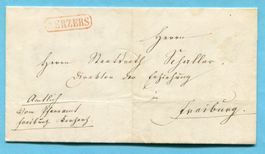 KERZERS
Herrn
Herrn Staatsrath Schaller
Direktor der Erziehung
in
Freiburg.
Amtlich
Vom Pfarramt
Freiburg